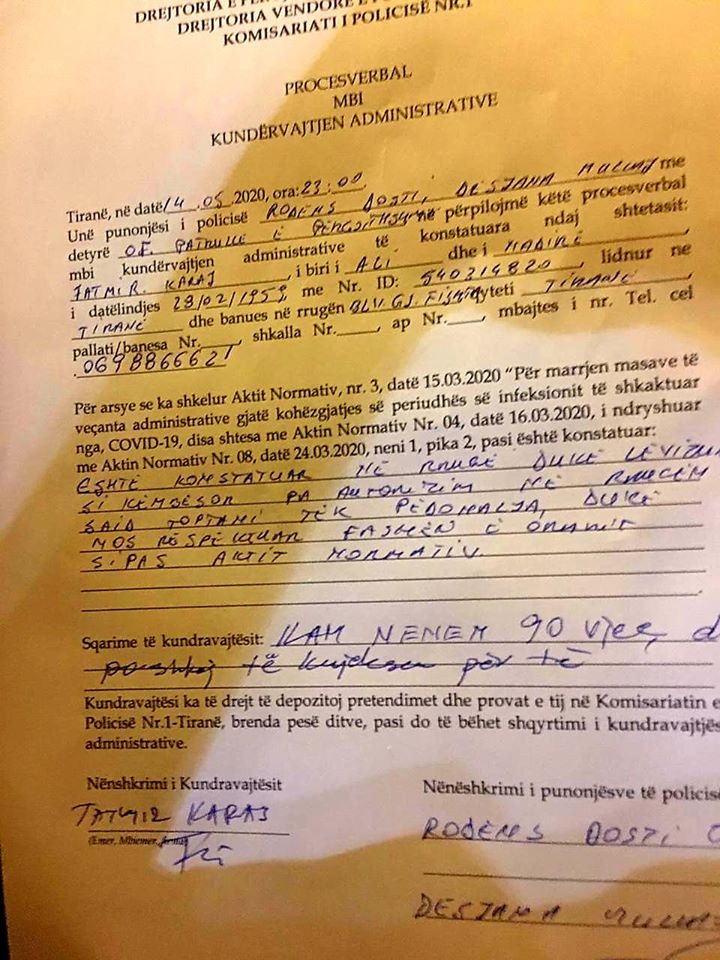 DREJTORIA E
DREJTORIA VENDORE E
KOMISARIATI I POLICISË NR.1
PROCESVERBAL
MBI
KUNDËRVAJTJEN ADMINISTRATIVE
Tiranë, në datë 14 .05 .2020, ora: 23:00
Unë punonjësi i policisë RODENS DOSTI, DESJANA me
detyrë O.F. PATRULLË E PËRGJITHSHME në përpilojmë këtë procesverbal
mbi kundërvajtjen administrative të konstatuara ndaj shtetasit:
FATMIR. KARAJ , i biri i ALI dhe i HADIRE , lidnur ne
i datëlindjes 28/02/1959, me Nr. ID: 540214820 ,
TIRANË dhe banues në rrugën BLV. GJ. FISHTA qyteti TIRANË ,
pallati/banesa Nr.____, shkalla Nr.____, ap Nr.____, mbajtes i nr. Tel. cel
.0698866621
Për arsye se ka shkelur Aktit Normativ, nr. 3, datë 15.03.2020 "Për marrjen masave të
veçanta administrative gjatë kohëzgjatjes së periudhës së infeksionit të shkaktuar
nga, COVID-19, disa shtesa me Aktin Normativ Nr. 04, datë 16.03.2020, i ndryshuar
me Aktin Normativ Nr. 08, datë 24.03.2020, neni 1, pika 2, pasi është konstatuar:
ËSHTË KONSTATUAR NË RRUGË DUKE LËVIZUR
SI KËMBËSOR PA AUTORIZIM NË RRUGËN
SAID TOPTANI TEK PEDONALJA, DUKE
MOS RESPEKTUAR FASHËN E ORARIT
SIPAS AKTIT NORMATIV
Sqarime të kundravajtësit: KAM NENEN 90 vjeç, d
të kujdesem për të
Kundravajtësi ka të drejt të depozitoj pretendimet dhe provat e tij në Komisariatin e
Policisë Nr.1-Tiranë, brenda pesë ditve, pasi do të bëhet shqyrtimi i kundravajtjes
administrative.
Nënshkrimi i Kundravajtësit
Nënëshkrimi i punonjësve të policisë
FATMIR KARAJ
(Emer, Mbiemer, firma)
RODENS DOSTI
DESJANA